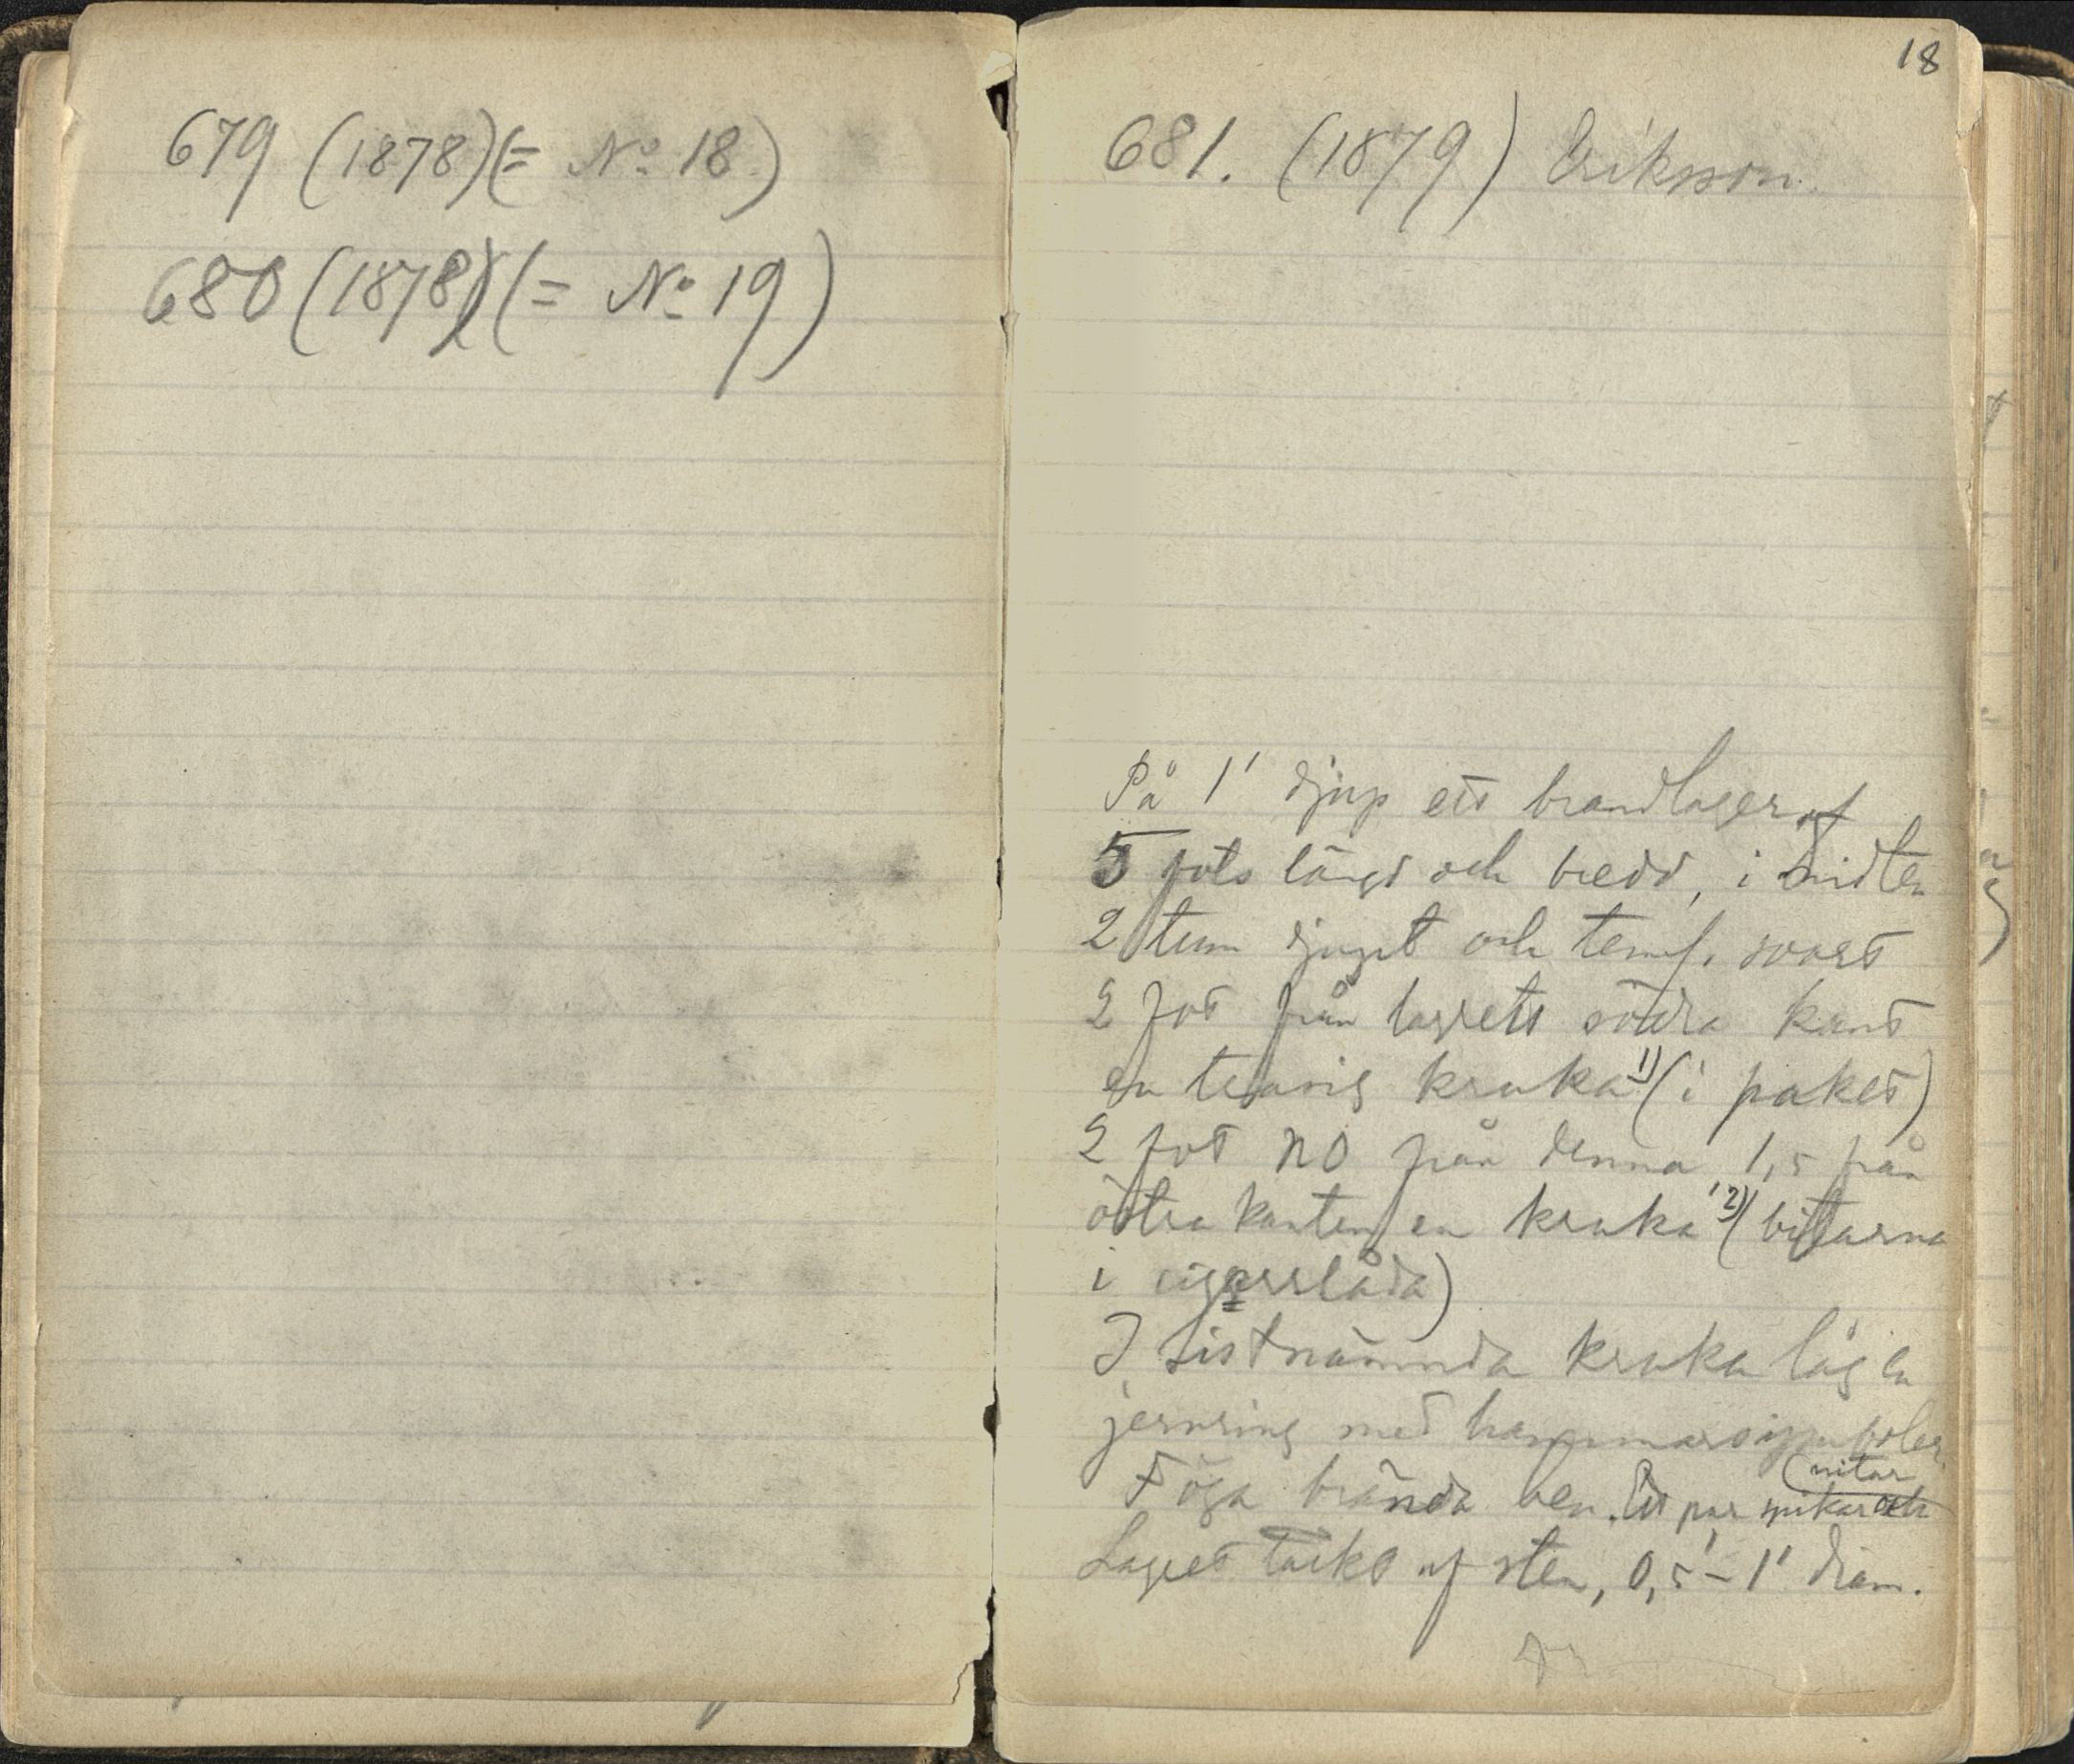 679 (1878) (= No 18)
680 (1878) (= No 19)
18
681. (1879) Eriksson.
På 1' djup ett brandlager af
5 fots längd och bredd, i midten
2 tum djupt och teml. svart
2 fot från lagrets södra kant
en kruka 1) (i paket)
2 fot NO från denna 1,5 från
östra kanten en kruka 2) (bitarna
i cigarrlåda)
I sistnämnda kruka låg en
jernring med hammarsymboler
(nitar
Föga brända ben. Ett par spikar och
Lagret täckt af sten, 0,5'-1' diam.